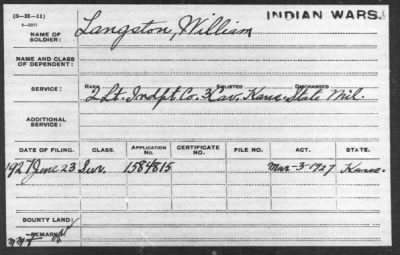 (3-III-11) INDIAN WARS.
NAME OF SOLDIER: Langston, William
NAME AND CLASS OF DEPENDENT:
RANK ENLISTED DISCHARGED
SERVICE: 2 Lt. Indpt Co. 3 Cav. Kans. State Mil.
ADDITIONAL SERVICE:
DATE OF FILING. CLASS. APPLICATION No. CERTIFICATE NO. FILE NO. ACT. STATE.
1927 June 23 Sur. 1584815 Mar-3-1927 Kans.
BOUNTY LAND:
REMARKS: